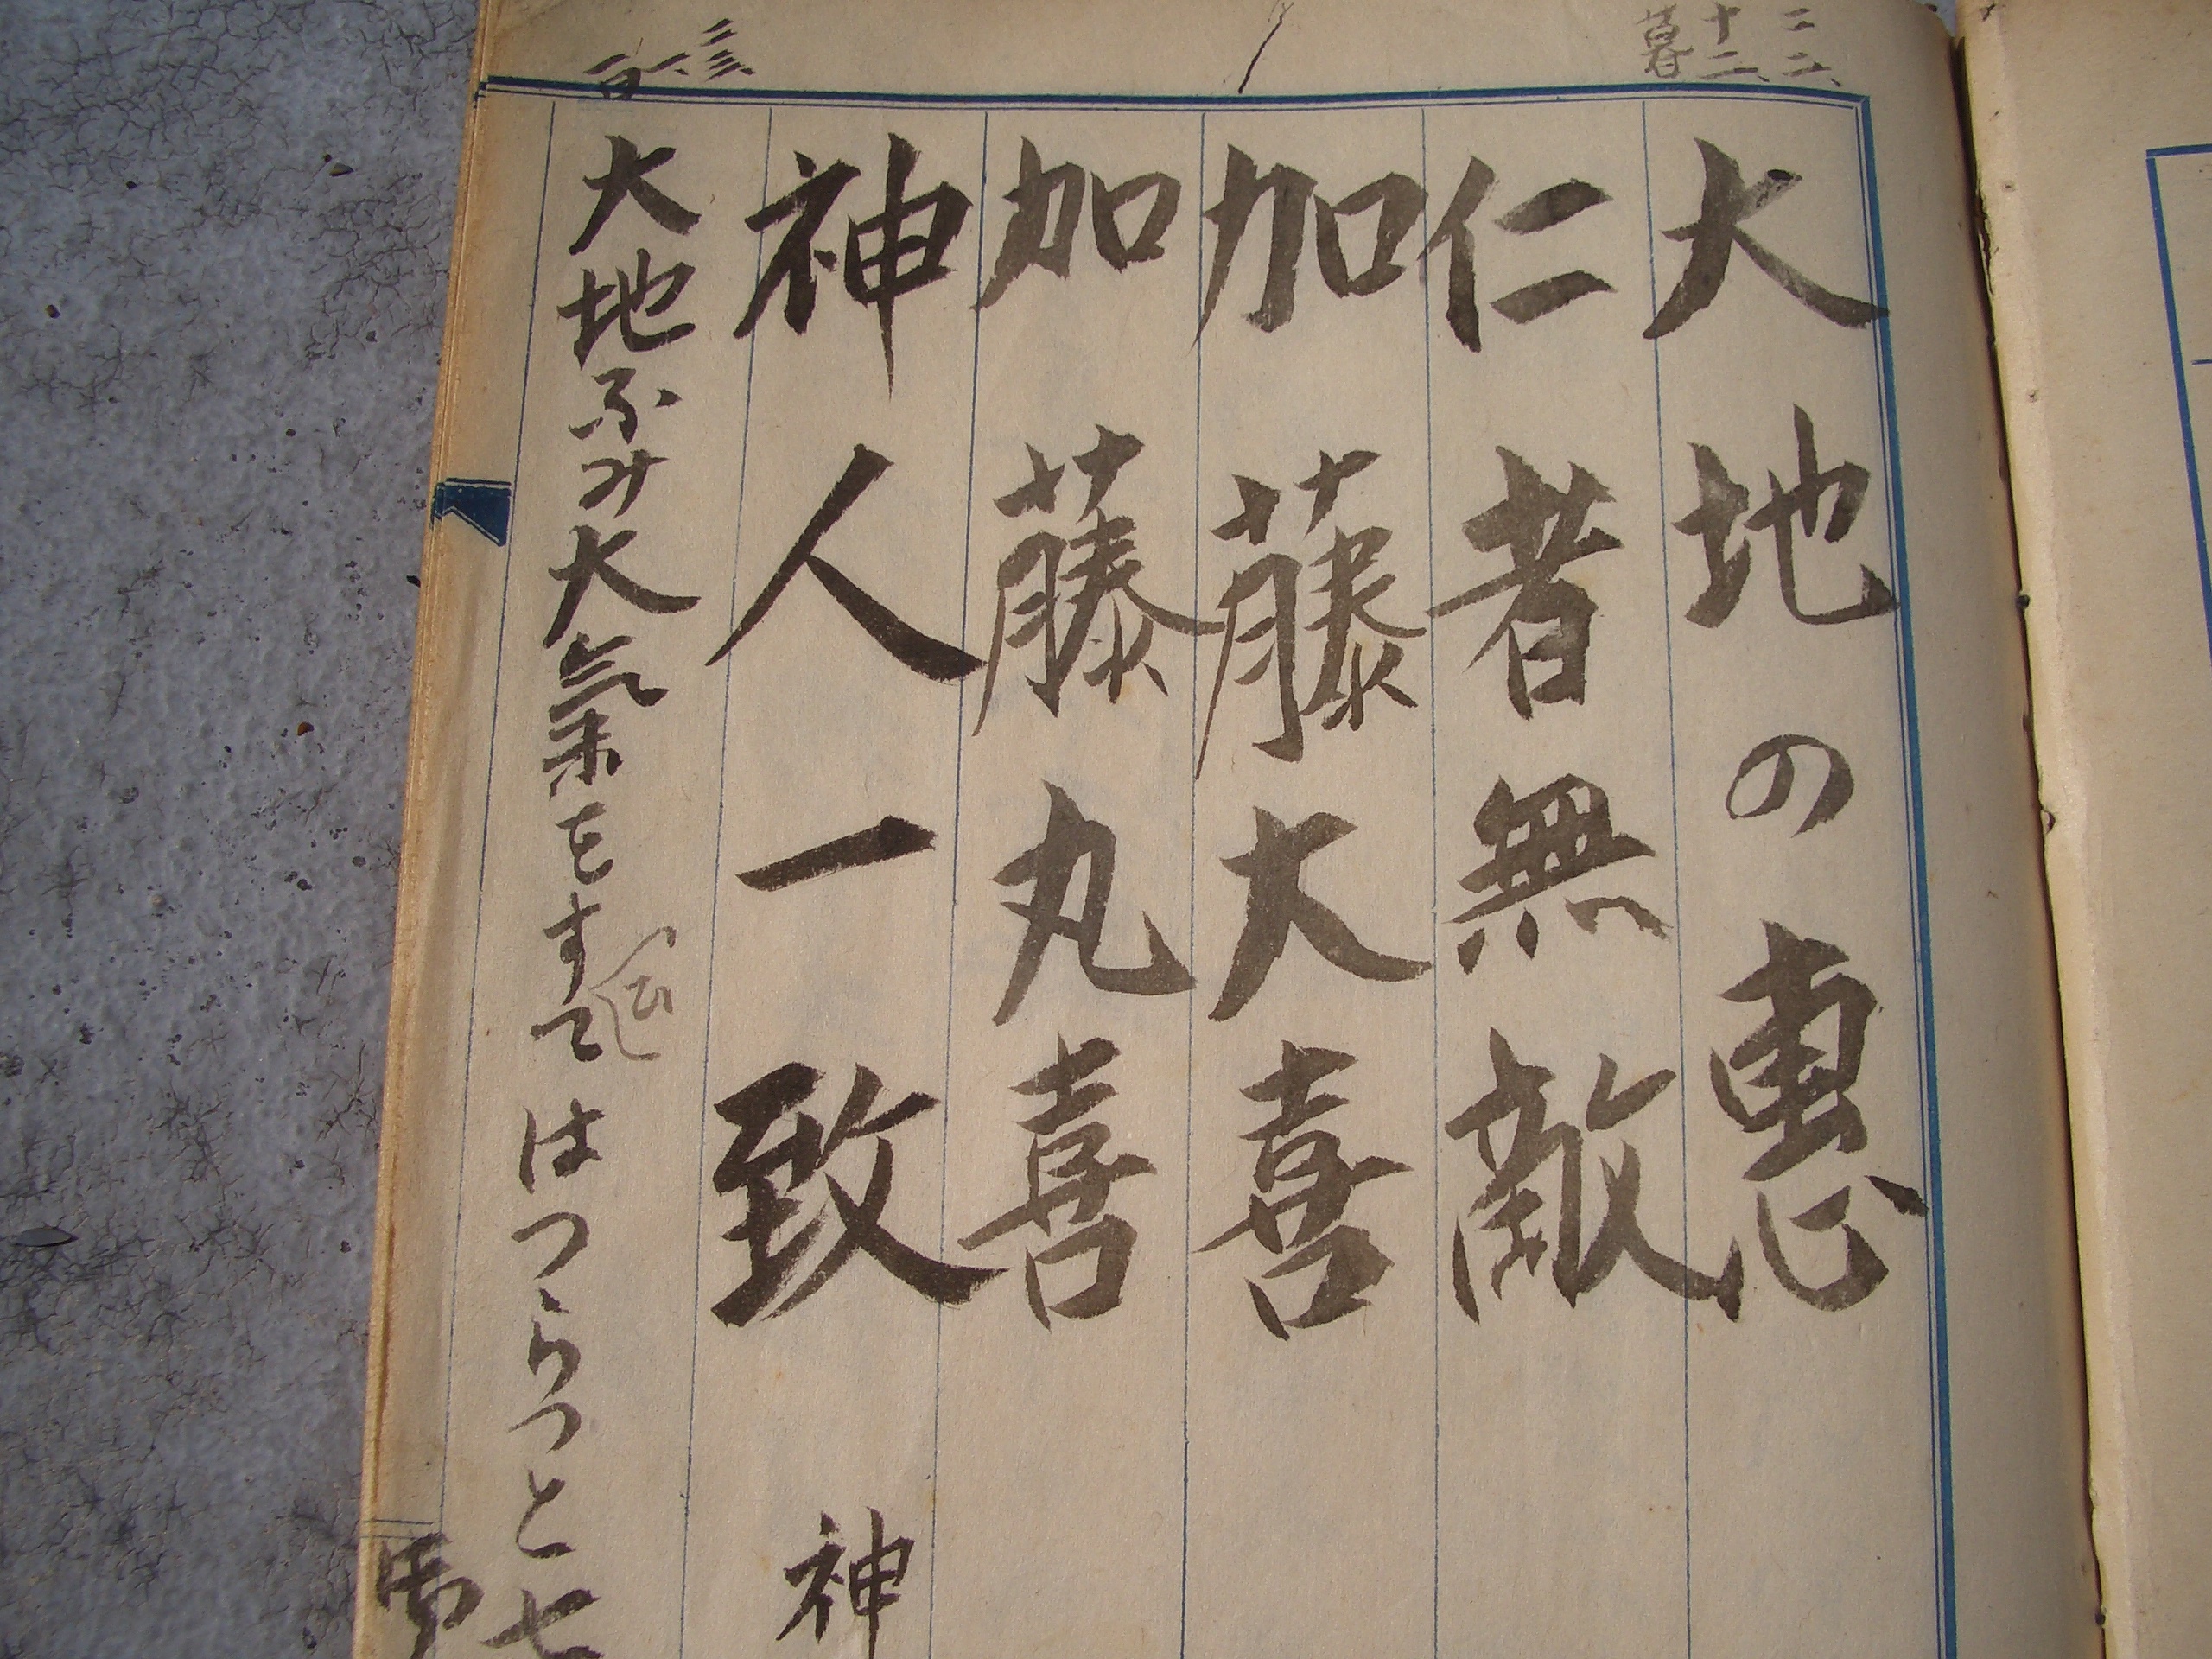 二、二、
十二、
暮
大地の惠
仁者無敵
加藤大喜
加藤丸喜
神人一致 神
大地ふみ大氣をすてはつらつと七